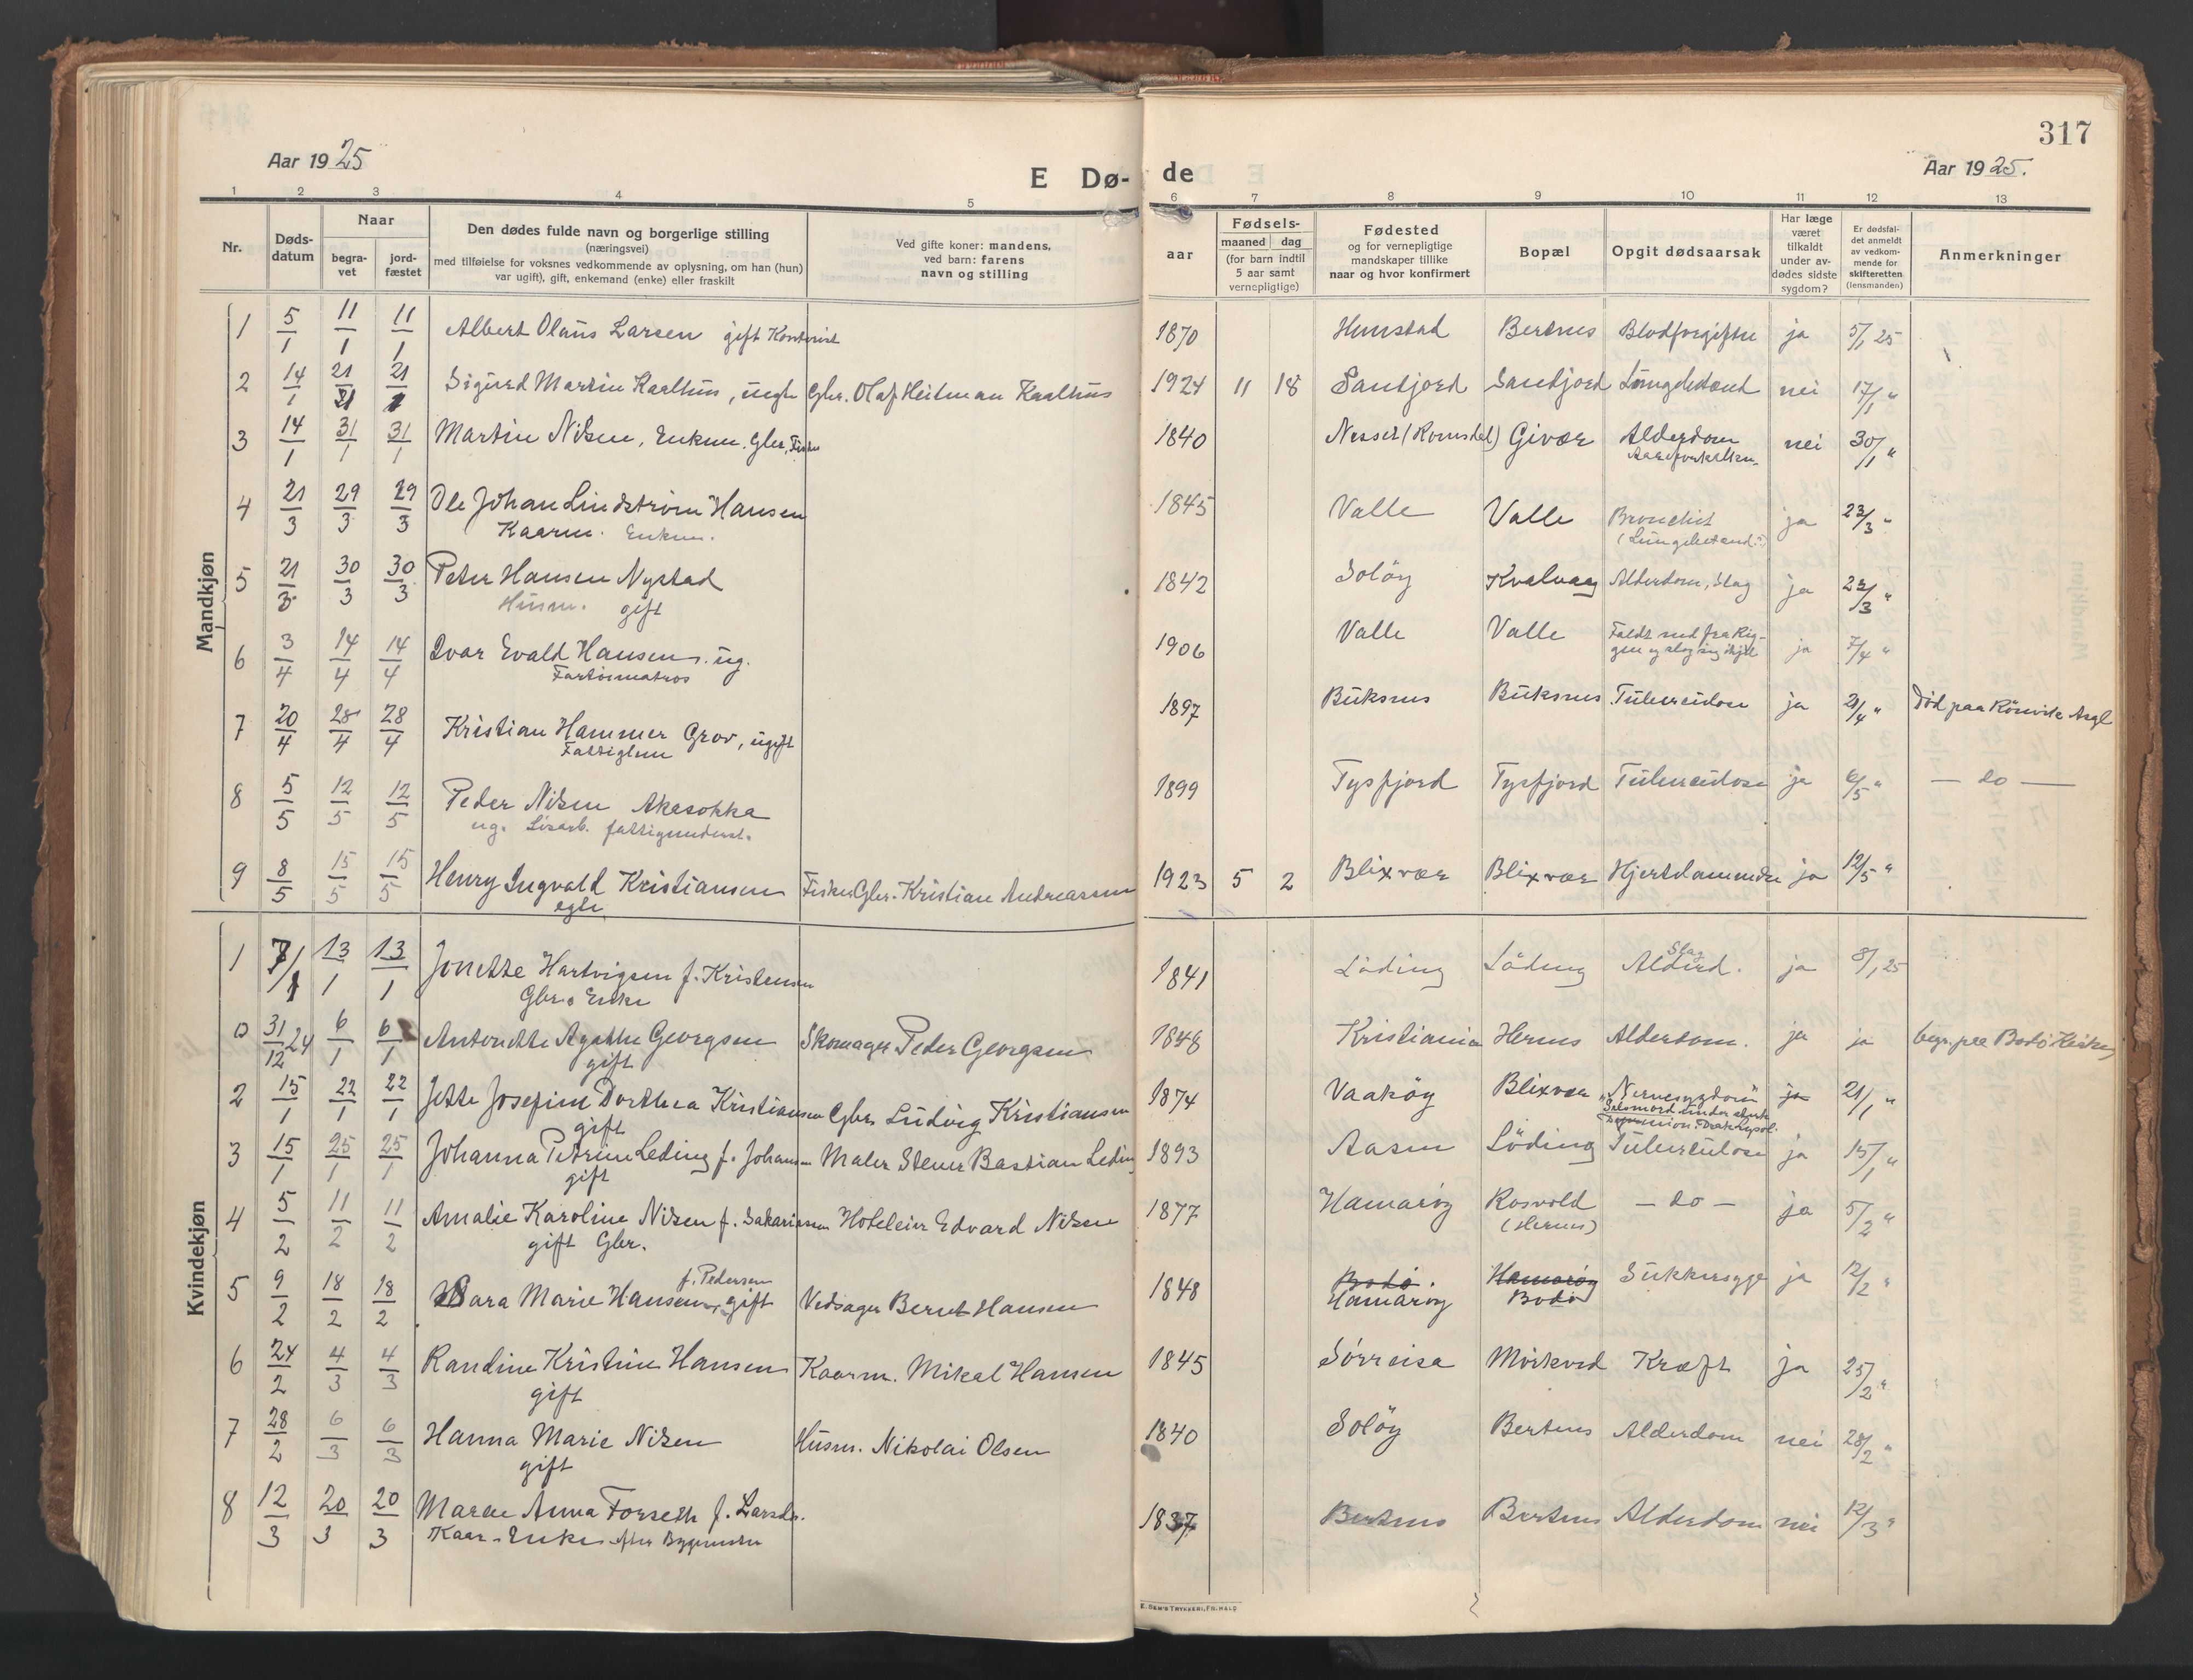 317
Aar 1925
E Dø-
de
Aar 1925.
1 2 3 4 5 6 7 8 9 10 11 12 13
Nr.
Døds-
datum
Naar
begra-
vet
jord-
fæstet
Den dødes fulde navn og borgerlige stilling
(næringsvei)
med tilføielse for voksnes vedkommende av oplysning, om han (hun)
var ugift), gift, enkemand (enke) eller fraskilt
Ved gifte koner: mandens,
ved barn: farens
navn og stilling
Fødsels-
aar
maaned dag
(for barn indtil
5 aar samt
vernepligtige)
Fødested
og for vernepligtige
mandskaper tillike
naar og hvor konfirmert
Bopæl
Opgit dødsaarsak
Har læge
været
tilkaldt
under av-
dødes sidste
sygdom?
Er dødsfal-
det anmeldt
av vedkom-
mende for
skifteretten
(lensmanden)
Anmerkninger
Mandkjøn
1 5/1 11/1 11/1 Albert Olaus Larsen gift Kontorist 1870 Hunstad Bertnes Blodforgiftn ja 5/1 25
2 14/1 21/1 21/1 Sigurd Martin Kaalhus, uegte Gbr. Olaf Heitman Kaalhus 1924 11 18 Santjord Santjord Lungebetænd nei 17/1 "
3 14/1 31/1 31/1 Martin Nilsen, Enkem. Gbr, Fisker 1840 Nesset (Romsdal) Givær Alderdom nei 30/1 "
Aareforkalkn.
4 21/3 29/3 29/3 Ole Johan Lindstrøm Hansen 1845 Valle Valle Bronchit ja 23/3 "
Kaarm. Enkem. (Lungebetænd.)
5 21/3 30/3 30/3 Peter Hansen Nystad 1842 Soløy Kvalvaag Alderdom, Slag ja 23/3 "
Husm. gift
6 3/4 14/4 14/4 Ivar Evald Hansen. ug. 1906 Valle Valle Faldt ned fra Rig- ja 7/4 "
Fartøimatros gen og slog sig ihjel
7 20/4 28/4 28/4 Kristian Hammer Grov, ugift 1897 Buksnes Buksnes Tuberculose ja 21/4 " Død paa Rönvik Asyl
Fattiglem
8 5/5 12/5 12/5 Peder Nilsen Akasokka 1899 Tysfjord Tysfjord Tuberculose ja 6/5 " — do —
ug. Løsarb. fattigunderst.
9 8/5 15/5 15/5 Henry Ingvald Kristiansen Fisker Gbr. Kristian Andreassen 1923 5 2 Blixvær Blixvær Hjertelammelse ja 12/5 "
egte
Kvindekjøn
1 7/1 13/1 13/1 Jonette Hartvigsen f. Kristensen 1841 Löding Löding Alderd. Slag ja 8/1 25
Gbr. Enke
0 31/12 24 6/1 6/1 Antonette Agathe Georgsen Skomager Peder Georgsen 1848 Kristiania Hernes Alderdom. ja ja begr. paa Bodö Kirkeg
gift
2 15/1 22/1 22/1 Jette Josefine Dorthea Kristiansen Gbr. Ludvig Kristiansen 1874 Vaaköy Blixvær "Nervesygdom" ja 21/1 "
gift Selvmord under
3 15/1 25/1 25/1 Johanna Petrine Leding f. Johansen Maler Stener Bastian Leding 1893 Aasen Löding Tuberculose ja 15/1 "
gift
4 5/2 11/2 11/2 Amalie Karoline Nilsen f. Sakariasen Hoteleier Edvard Nilsen 1877 Hamaröy Rosvold — do — ja 5/2 "
gift Gbr. (Hernes)
5 9/2 18/2 18/2 Sara Marie Hansen f. Pedersen gift Vedsager Bernt Hansen 1848 Bodö. Hamaröy Sukkersyge ja 12/2 "
Hamaröy Bodö
6 24/2 4/3 4/3 Randine Kristine Hansen Kaarm. Mikal Hansen 1845 Sörreisa Mörkved Kræft ja 25/2 "
gift
7 28/2 6/3 6/3 Hanna Marie Nilsen Husm. Nikolai Olsen 1840 Solöy Bertnes Alderdom nei 28/2 "
gift
8 12/3 20/3 20/3 Maren Anna Forseth f. Larsdr. 1837 Bertnes Bertnes Alderdom nei 12/3 "
Kaar-Enke efter Bygmester
E. SEM'S TRYKKERI, FR.HALD